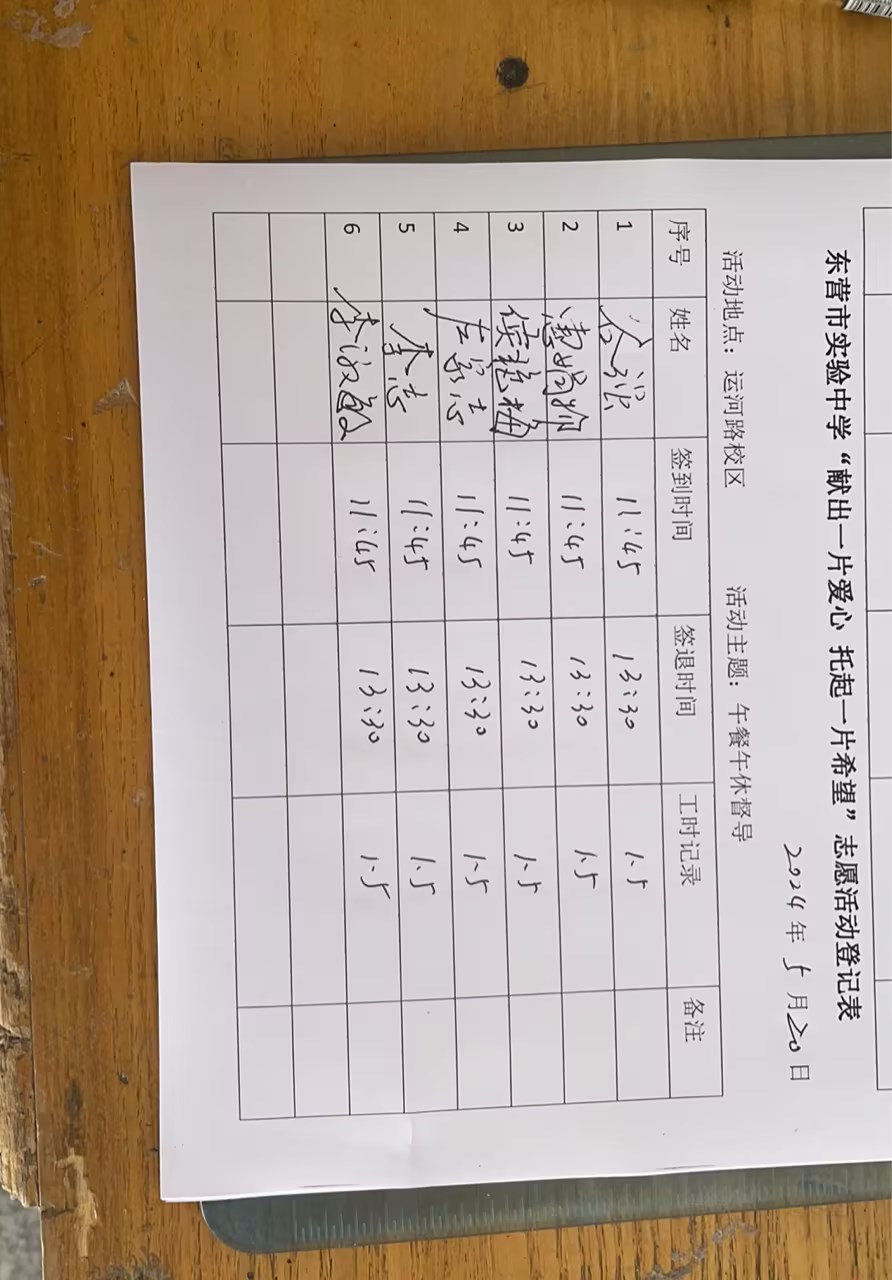 东营市实验中学“献出一片爱心 托起一片希望”志愿活动登记表
2024年 5 月20日
活动地点：运河路校区 活动主题：午餐午休督导
序号 姓名 签到时间 签退时间 工时记录 备注
1 11:45 13:30 1.5
2 11:45 13:30 1.5
3 侯艳梅 11:45 13:30 1.5
4 左家志 11:45 13:30 1.5
5 李志 11:45 13:30 1.5
6 李敏 11:45 13:30 1.5